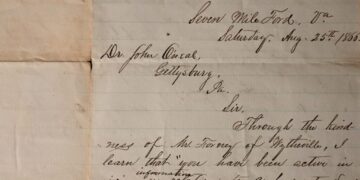 Seven Mile Ford, Va
Saturday, Aug. 25th, 1866.
Dr John O'neal,
Gettysburg,
Pa.
Sir.
Through the kind-
ness of Mr. Forney of Wytheville, I
learn that "you have been active in